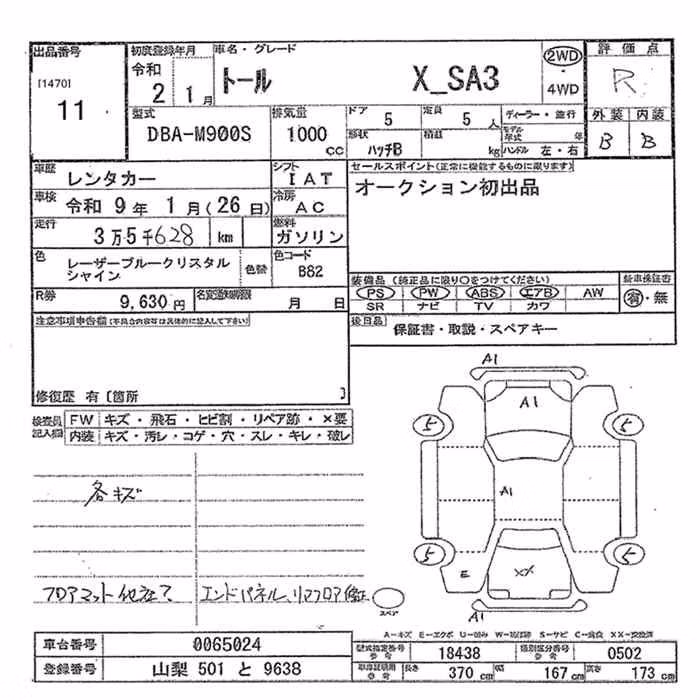 出品番号
[1470]
11
初度登録年月
令和
2 1月
車名・グレード
トール X_SA3
2WD
・
4WD
評価点
R
外装 内装
B B
型式
DBA-M900S
排気量
1000 cc
ドア 5
定員 5 人
形状 ハッチB
積載 kg
ディーラー・並行
モデル年式 年
ハンドル 左・右
車歴 レンタカー
シフト IAT
車検 令和 9年 1月(26日)
冷房 AC
走行 3万5千628 km
燃料 ガソリン
色 レーザーブルークリスタル
シャイン
色替
色コード B82
R券 9,630円
名変期限 月 日
セールスポイント(正常に機能するものに限ります)
オークション初出品
装備品 (純正品に限り○をつけてください)
PS PW ABS エアB AW
SR ナビ TV カワ
新車保証書
有・無
後日品
保証書・取説・スペアキー
注意事項申告欄(不具合内容等は具体的に記入して下さい)
修復歴 有〔箇所 〕
検査員記入欄
FW キズ・飛石・ヒビ割・リペア跡・×要
内装 キズ・汚レ・コゲ・穴・スレ・キレ・破レ
各キズ
フロアマット他左て エンドパネル、リアフロア修正
スペア
A1
A1
5 5
A1
5 5
E
XX
A1
A-キズ E-エクボ U-凹み W-波跡 S-サビ C-腐食 XX-交換済
車台番号 0065024
登録番号 山梨 501 と 9638
型式指定番号 参考 18438
類別区分番号 参考 0502
車庫証明用 参考 長さ 370 cm 幅 167 cm 高さ 173 cm